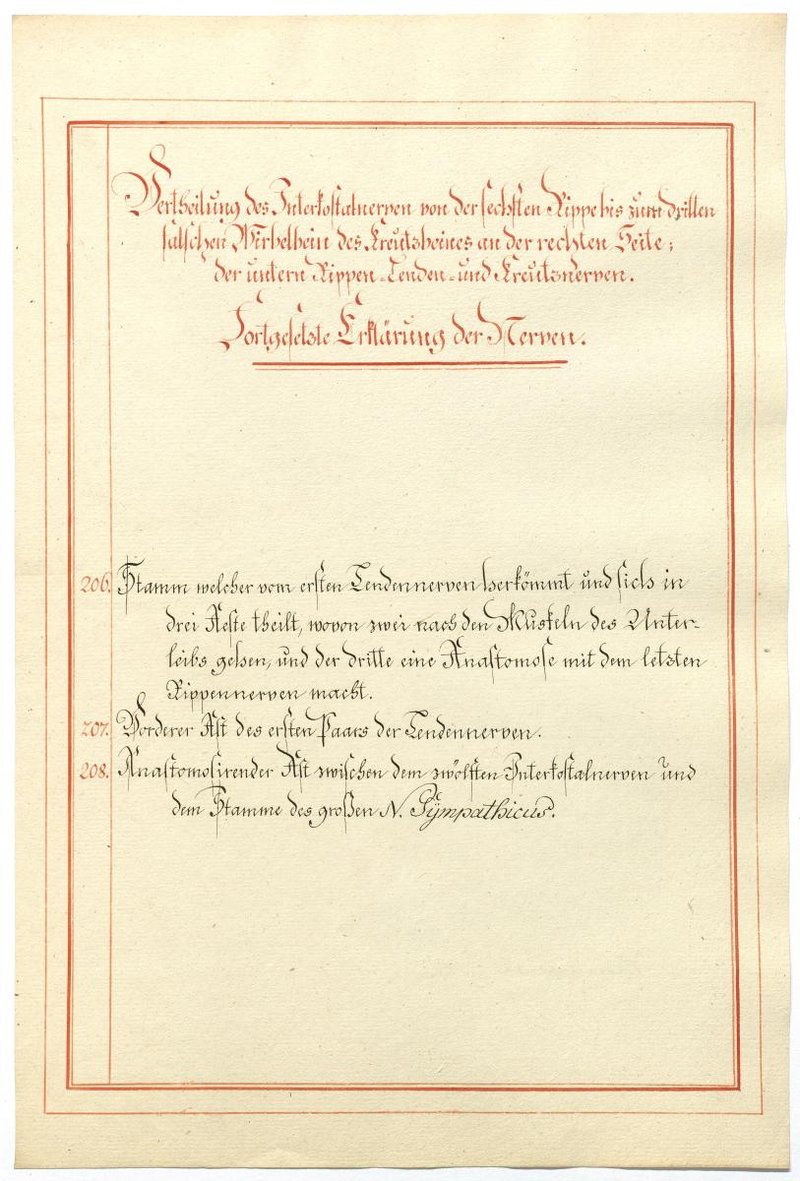 Vertheilung des Interkostalnerven von der sechsten Rippe bis zum dritten
falschen Wirbelbein des Kreutzbeines an der rechten Seite;
der untern Rippen-Lenden- und Kreutznerven.
Fortgesetzte Erklärung der Nerven.
206. Stamm welcher vom ersten Lendennerven herkömmt und sich in
drei Aeste theilt, wovon zwei nach den Muskeln des Unter-
leibs gehen, und der dritte eine Anastomose mit dem letzten
Rippennerven macht.
207. Vorderer Ast des ersten Paars der Lendennerven.
208. Anastomosirender Ast zwischen dem zwölften Interkostalnerven und
dem Stamme des großen N. Sÿmpathicus.